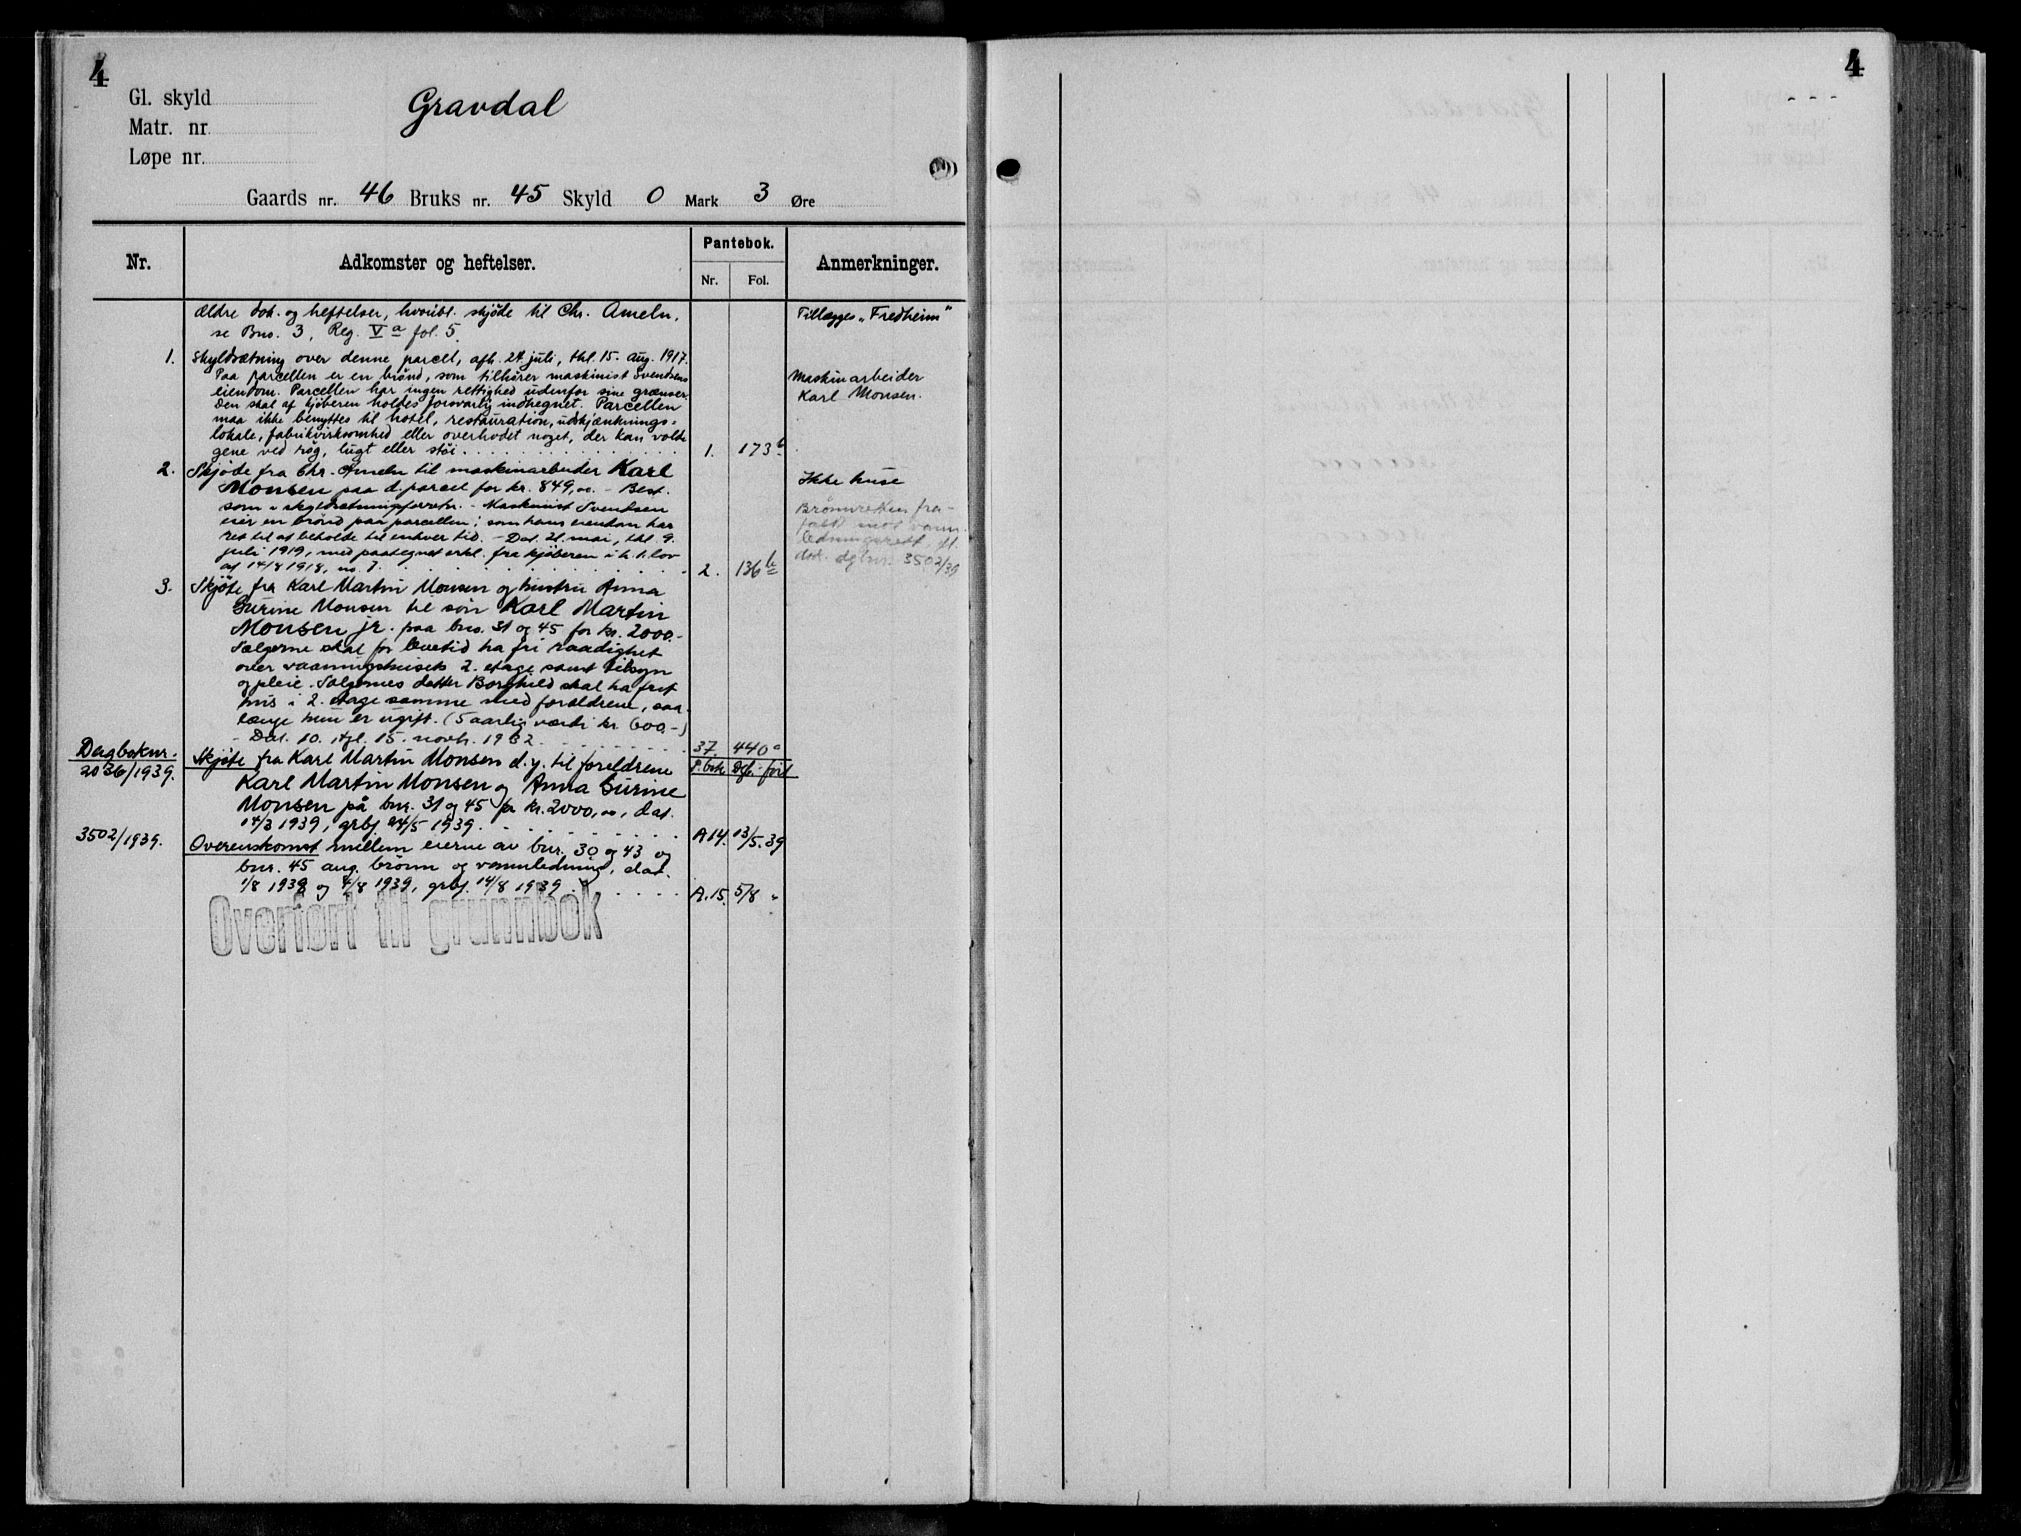 4
Gl. skyld
Matr. nr.
Løpe nr.
Gravdal
Gaards nr. 46 Bruks nr. 45 Skyld 0 Mark 3 Øre
Nr.
Adkomster og heftelser.
Pantebok.
Nr.
Fol.
Anmerkninger.
Ældre dok. og heftelser, hvoribl. skjøde til Chr. Ameln,
se Bno. 3, Reg. V a fol. 5.
Tillægges „Fredheim"
1. Skyldsætning over denne parcel, afh. 24 juli, thl. 15. aug. 1917.
Paa parcellen er en brønd, som tilhører maskinist Svendsens
eiendom. Parcellen har ingen rettighed udenfor sine grænser.
Den skal af kjøberen holdes forsvarlig indhegnet. Parcellen
maa ikke benyttes til hotel, restauration, udskjænknings=
lokale, fabrikvirksomhed eller overhodet noget, der kan volde
gene ved røg, lugt eller støi. 1. 173 b
Maskinarbeider
Karl Monsen.
2. Skjøde fra Chr. Ameln til maskinarbeider Karl
Monsen paa d. parcel for kr. 849,00. - Best.
som i skyldsætningsforretn. - Maskinist Svendsen
eier en brønd paa parcellen; som hans eiendom har
ret til at beholde til enhver tid. - Dat. 21. mai, thl. 9.
juli 1919, med paategnet erkl. fra kjøberen i h. t. lov
af 14/8 1918, no. 7. 2. 136 b
Ikke huse
Brønnretten fra-
falt mot vann-
ledningsrett, fl.
dok. dgbnr. 3502/39
3. Skjøte fra Karl Martin Monsen og hustru Anna
Gurine Monsen til søn Karl Martin
Monsen jr. paa bno. 31 og 45 for kr. 2000.-
Sælgerne skal for levetid ha fri raadighet
over vaaningshusets 2. etage samt tilsyn
og pleie. Sælgernes datter Borghild skal ha frit
hus i 2. etage sammen med forældrene, saa-
længe hun er ugift. (5 aarlig værdi kr. 600.-)
- Dat. 10. tgl. 15. novb. 1932. 37. 440 a
Dagboknr.
2036/1939. Skjøte fra Karl Martin Monsen d.y. til foreldrene P.bok Dgb. ført
Karl Martin Monsen og Anna Gurine
Monsen på bnr. 31 og 45 for kr. 2000,00, dat.
14/3 1939, grbf. 24/5 1939. A.14. 13/5.39
3502/1939. Overenskomst mellem eierne av bnr. 30 og 43 og
bnr. 45 ang. brønn og vannledning, dat.
1/8 1939 og 4/8 1939, grbf. 14/8 1939. A.15. 5/8 "
Overført til grunnbok
4